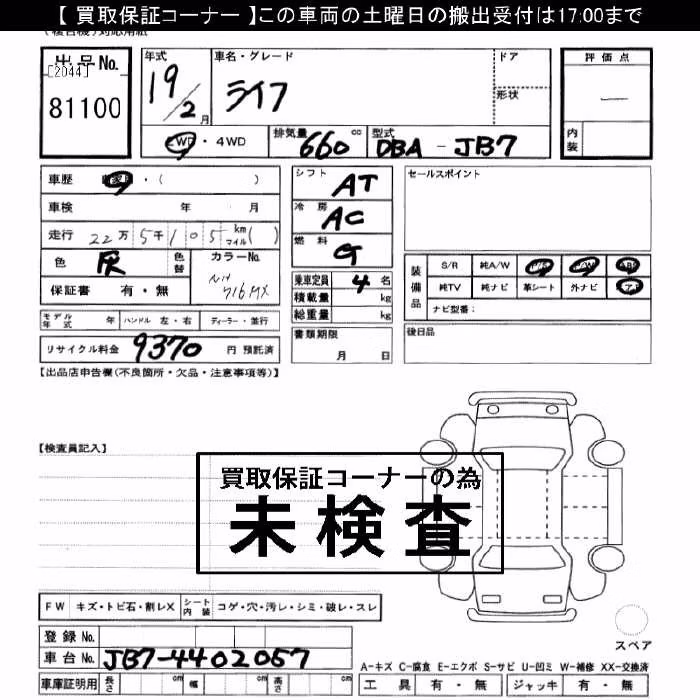 【 買取保証コーナー 】この車両の土曜日の搬出受付は17:00まで
出品No.
[2044]
81100
年式
19/2月
車名・グレード
ライフ
ドア
形状
評価点
—
内装
2WD・4WD
排気量 660 cc
型式 DBA - JB7
車歴 自家用・( )
車検 年 月
走行 22万5千105 km マイル( )
色 灰 色替
カラーNo.
NH716MX
保証書 有・無
シフト AT
冷房 AC
燃料 G
乗車定員 4 名
積載量 kg
総重量 kg
セールスポイント
装備品
S/R 純A/W P/S P/W ABS
純TV 純ナビ 革シート 外ナビ エアB
ナビ型番:
モデル年式 年 ハンドル 左・右 ディーラー・並行
リサイクル料金 9370 円 預託済
書類期限
月 日
後日品
【出品店申告欄(不良箇所・欠品・注意事項等)】
【検査員記入】
買取保証コーナーの為
未検査
FW キズ・トビ石・割レX シート内装 コゲ・穴・汚レ・シミ・破レ・スレ
登録No.
車台No. JB7-4402057
車庫証明用 長さ cm 幅 cm 高さ cm
スペア
A-キズ C-腐食 E-エクボ S-サビ U-凹ミ W-補修 XX-交換済
工具 有・無 ジャッキ 有・無